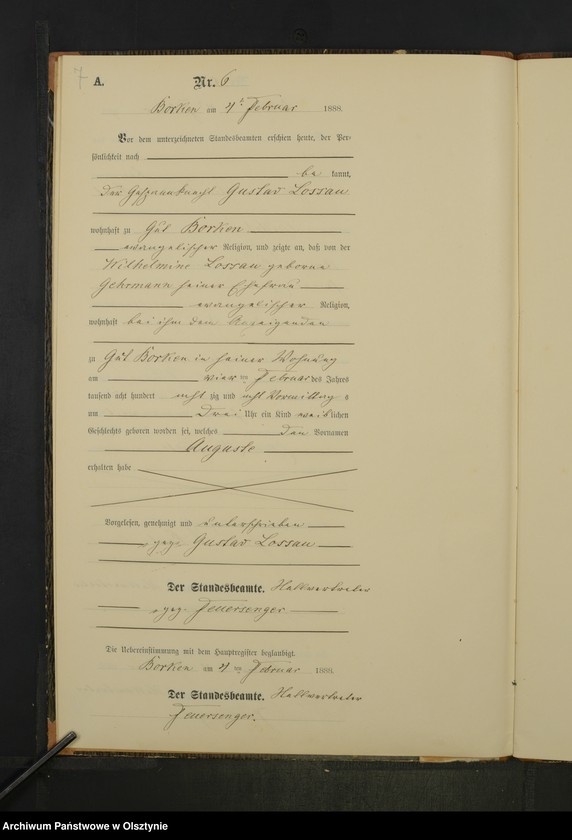 7
A.
Nr. 6
Borken am 4t Februar 1888.
Vor dem unterzeichneten Standesbeamten erschien heute, der Per-
sönlichkeit nach
be kannt,
der Gespannknecht Gustav Lossau
wohnhaft zu Gut Borken
evangelischer Religion, und zeigte an, daß von der
Wilhelmine Lossau geborene
Gehrmann seiner Ehefrau
evangelischer Religion,
wohnhaft bei ihm dem Anzeigenden
zu Gut Borken in seiner Wohnung
am vier ten Februar des Jahres
tausend acht hundert acht zig und acht Vormittag s
um Drei Uhr ein Kind weib lichen
Geschlechts geboren worden sei, welches den Vornamen
Auguste
erhalten habe
Vorgelesen, genehmigt und unterschrieben
gez. Gustav Lossau
Der Standesbeamte.
gez. Feuersenger
Die Uebereinstimmung mit dem Hauptregister beglaubigt.
Borken am 4 ten Februar 1888.
Der Standesbeamte.
Feuersenger.
Archiwum Państwowe w Olsztynie